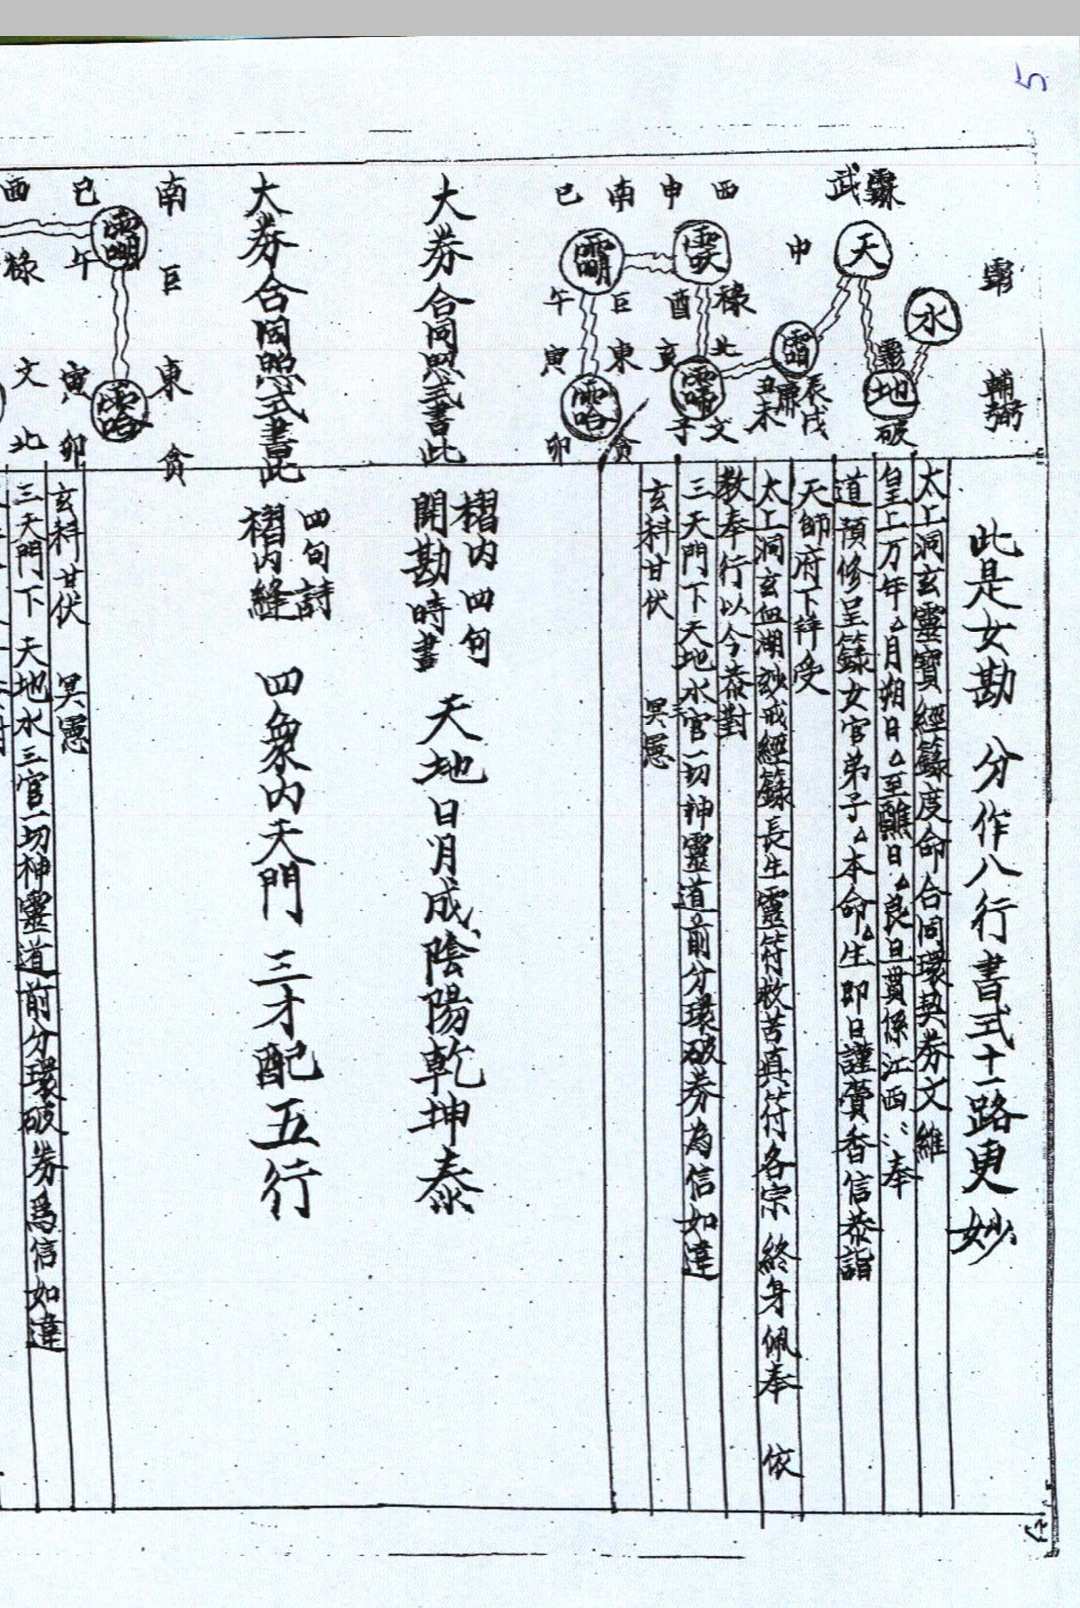 5
此是女勘 分作八行書式十一路更妙
太上洞玄靈寶經籙度命合同環契券文維
皇上万年△月朔日△至醮日△良旦貫係江西⋮奉
道預修呈籙女官弟子△本命△生即日謹賫香信恭詣
天師府下拜受
太上洞玄血湖妙戒經籙長生靈符救苦真符各宗 終身佩奉 依
教奉行以今恭對
三天門下天地水三官一切神靈道前分環破券為信如違
玄科甘伏 冥憲
輔弼
水
武
天
申
地
破
廉
丑未
辰戌
西
申
南
巳
酉
祿
北
亥
子
文
午
巨
寅
東
卯
貪
大券合同照式書此
褶内四句
開勘時書
天地日月成陰陽乾坤泰
大券合同照式書此
四句詩
褶内縫
四象内天門 三才配五行
南
巳
西
午
巨
祿
東
寅
文
貪
卯
北
玄科甘伏 冥憲
三天門下 天地水三官一切神靈道前分環破券為信如違